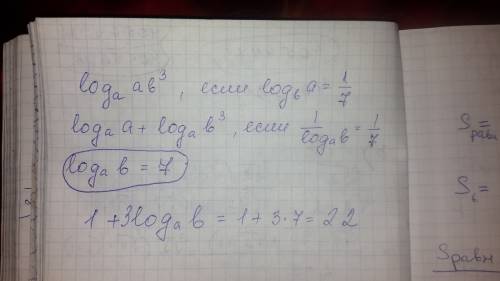 logₐ ab³, если log_b a = 1/7
logₐ a + logₐ b³, если 1/logₐ b = 1/7
logₐ b = 7
1 + 3logₐ b = 1 + 3·7 = 22
S рава =
S₆ =
Sравн